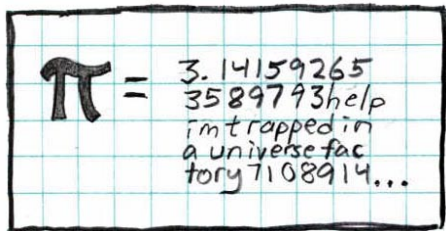 π = 3.14159265
3589793help
imtrappedin
a universefac
tory7108914...